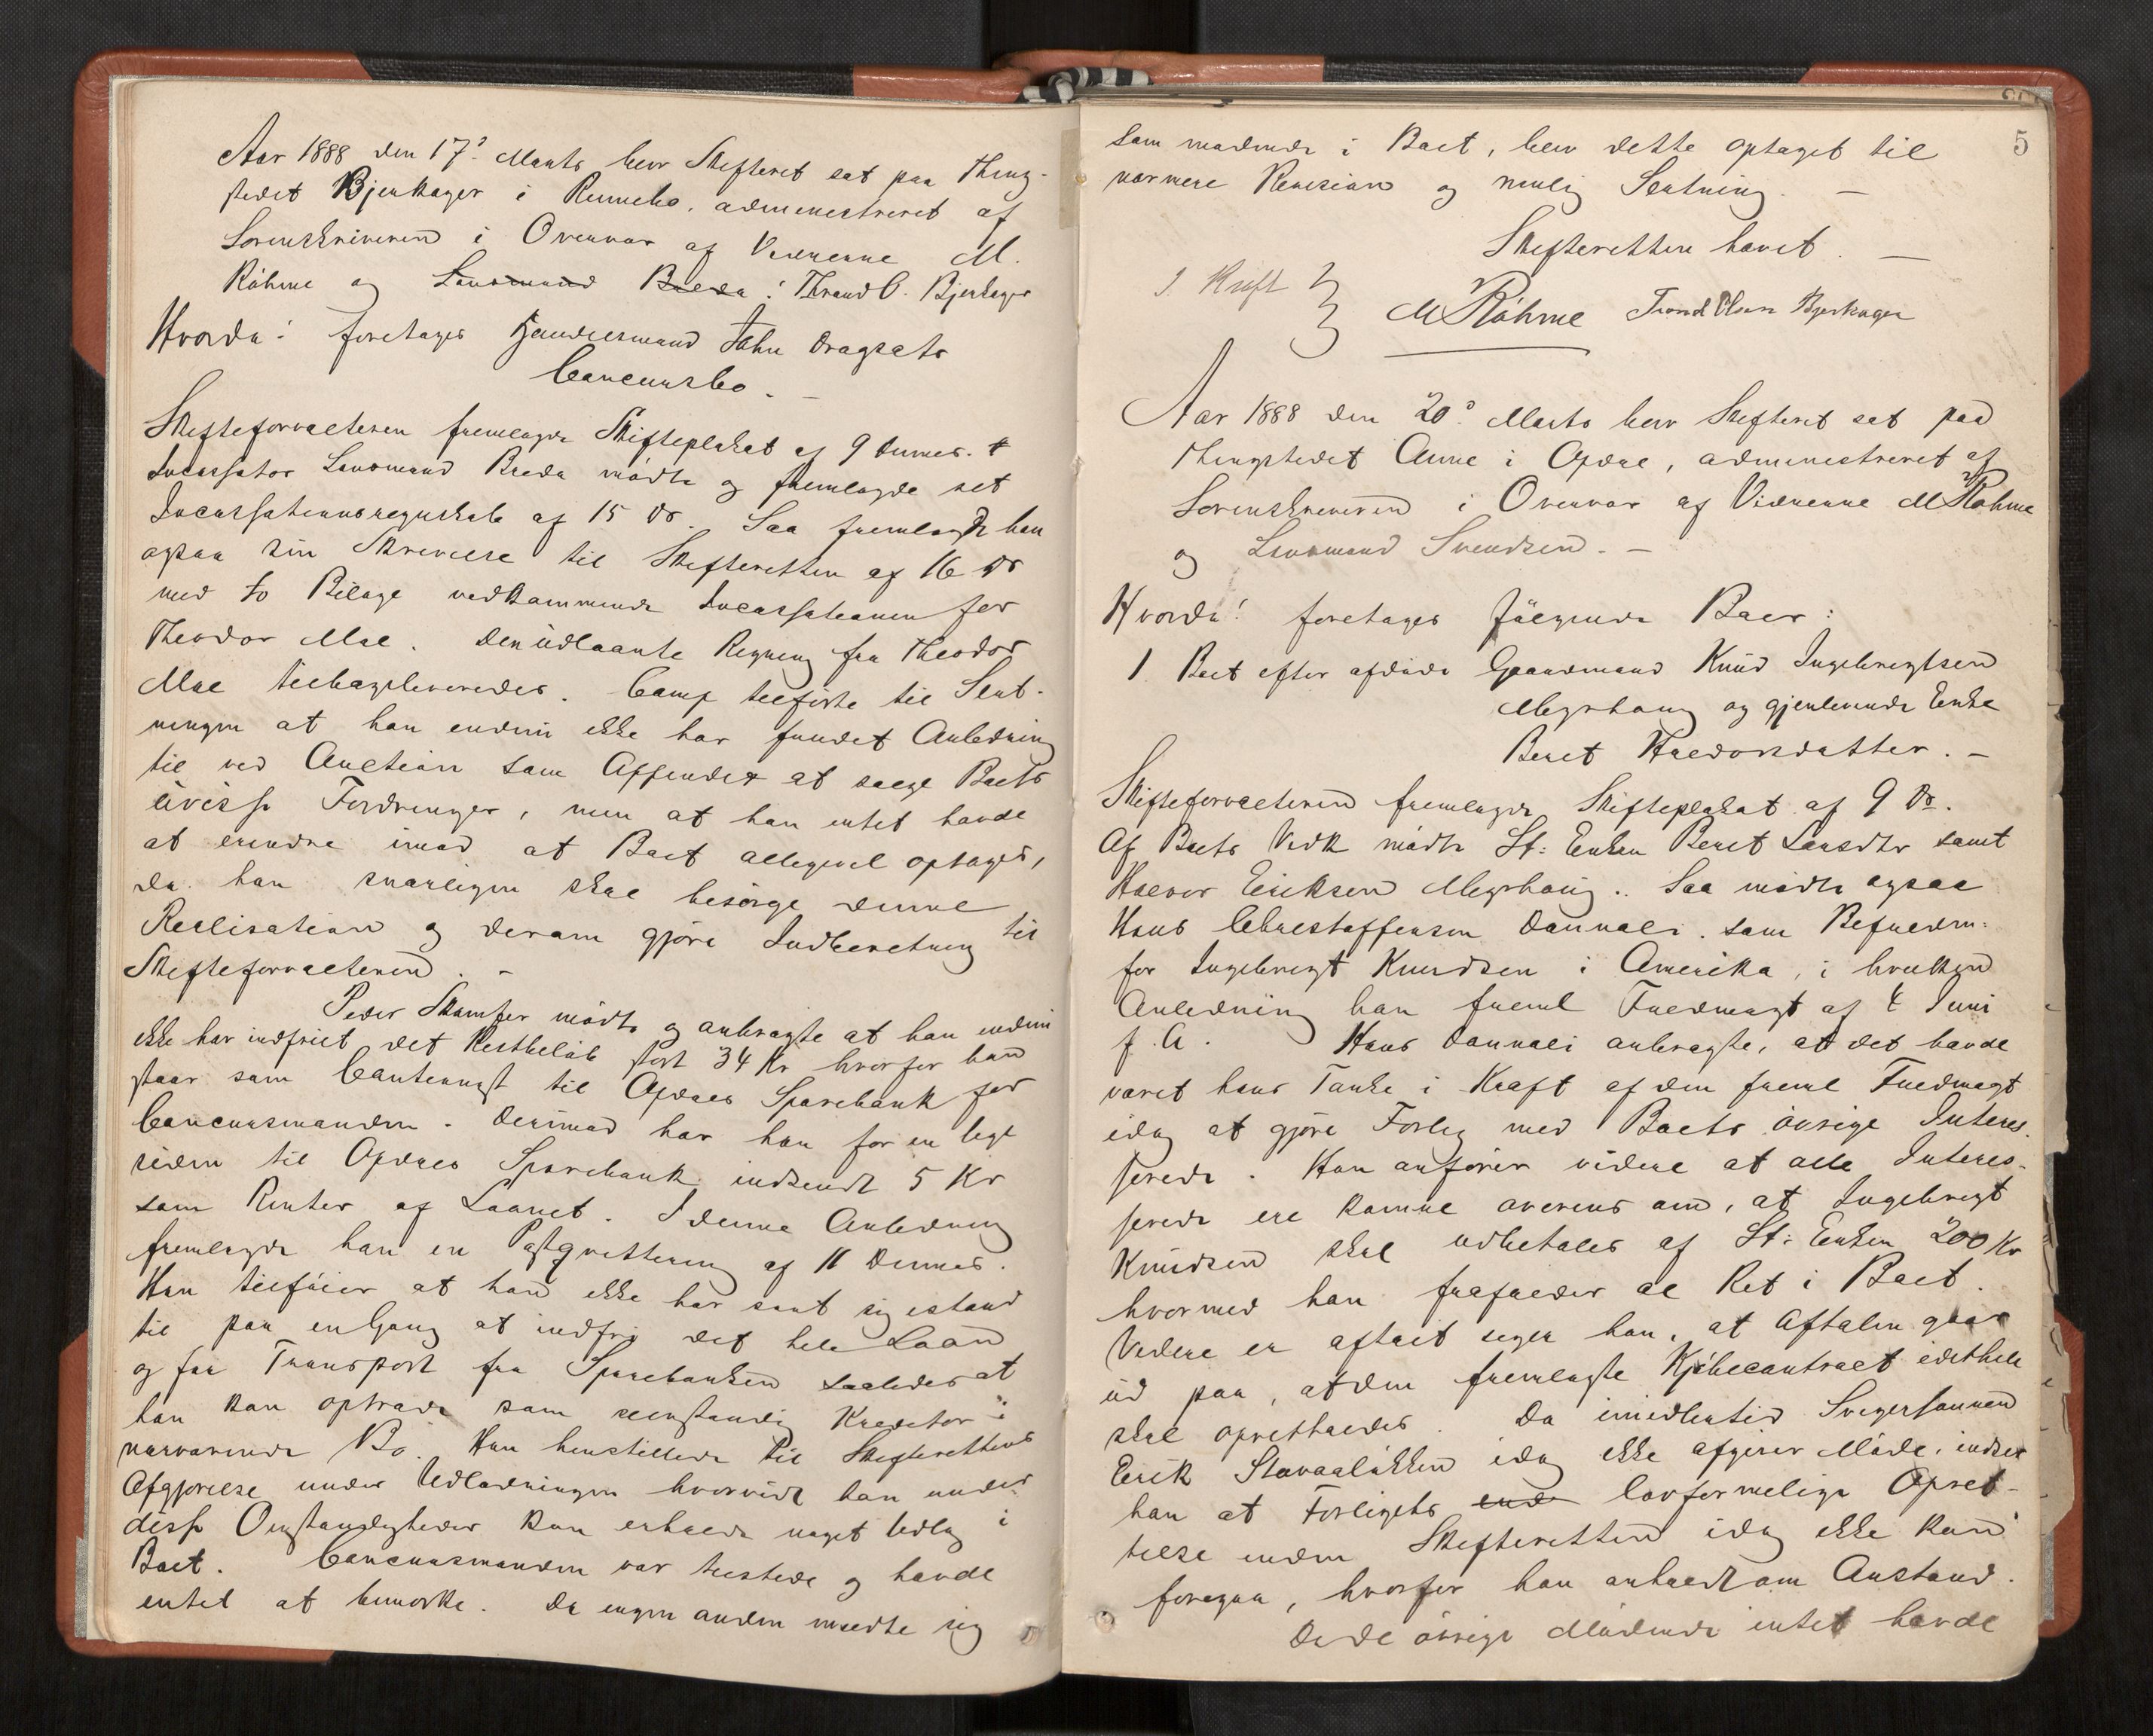 Aar 1888 den 17de Marts blev Skifteret sat paa Thing-
stedet Bjerkager i Rennebo, administreret af
Sorenskriveren i Overvær af Vidnerne M.
Röhme og Lensmand Breda: Thrond O. Bjerkager
Hvorda: foretages Handelsmand John Dragsets
Concursbo. –
Skifteforvalteren fremlagde Skifteplakat af 9 dennes.
Incassator Lensmand Breda mödte og fremlagde sit
Incassationsregnskab af 15 ds. Saa fremlagde han
ogsaa sin Skrivelse til Skifteretten af 16 ds
med to Bilage vedkommende Incassationen for
Theodor Moe. Den udlaante Regning fra Theodor
Moe tilbageleveredes. Comp tilförte til Slut-
ningen at han endnu ikke har fundet Anledning
til ved Auction som Affender at sælge Boets
uvisse Fordringer, men at han intet havde
at erindre imod at Boet allegevel optages,
da han snarligen skal besörge denne
Realisation og derom gjöre Indberetning til
Skifteforvalteren. –
Peder Skamfer mödte og anbragte at han endnu
ikke har indfriet det Restbelöb stort 34 Kr hvorfor han
staar som Cautionist til Opdals Sparebank for
Concursmanden. Derimod har han for en Uge
siden til Opdals Sparebank indsendt 5 Kr
som Renter af Laanet. I denne Anledning
fremlagde han en Postqvittering af 11 dennes.
Han tilföier at han ikke har seet sig istand
til paa en Gang at indfri det hele Laan
og faa Transport fra Sparebanken saaledes at
han kan optræde som selvstændig Kreditor i
nærværende Bo. Han henstillede til Skifterettens
Afgjörelse under Udlodningen hvorvidt han under
disse Omstændigheder kan erholde noget Udlæg i
Boet. Concursmanden var tilstede og havde
intet at bemærke. Da ingen anden meldte sig
5
som mødende i Boet, blev dette optaget til
nærmere Revision og mulig Slutning. –
Skifteretten hævet. –
J. Kraft
M Röhme Trond Olsen Bjerkager
Aar 1888 den 20de Marts blev Skifteret sat paa
Thingstedet Aune i Opdal, administreret af
Sorenskriveren i Overvær af Vidnerne M Röhme
og Lensmand Svendsen. –
Hvorda! foretages fölgende Boer:
1 Boet efter afdöde Gaardmand Knud Ingebrigtsen
Megshaug og gjenlevende Enke
Beret Haldorsdatter. –
Skifteforvalteren fremlagde Skifteplakat af 9 ds.
Af Boets Vedk mödte St: Enken Beret Larsdtr samt
Halvor Eriksen Megshaug. Saa mödte ogsaa
Hans Christoffersen Donnali som Befuldm:
for Ingebrigt Knudsen i Amerika, i hvilken
Anledning han freml Fuldmagt af 4 Juni
f. A. Hans Donnali anbragte, at det havde
været hans Tanke i Kraft af den freml Fuldmagt
idag at gjöre Forlig med Boets övrige Interes-
serede. Han anförer videre at alle Interes-
serede ere komne overens om, at Ingebrigt
Knudsen skal udbetales af St: Enken 200 Kr
hvormed han frafalder al Ret i Boet.
Videre er aftalt siger han, at Aftalen gaar
ud paa, at den fremlagte Kjöbecontract idethele
skal opretholdes. Da imidlertid Svigersønnen
Erik Stavaalökken idag ikke afgiver Möde, indser
han at Forligets end lovformelige Opret-
telse inden Skifteretten idag ikke kan
foregaa, hvorfor han anholdt om Anstand.
Da de övrige Mödende intet havde